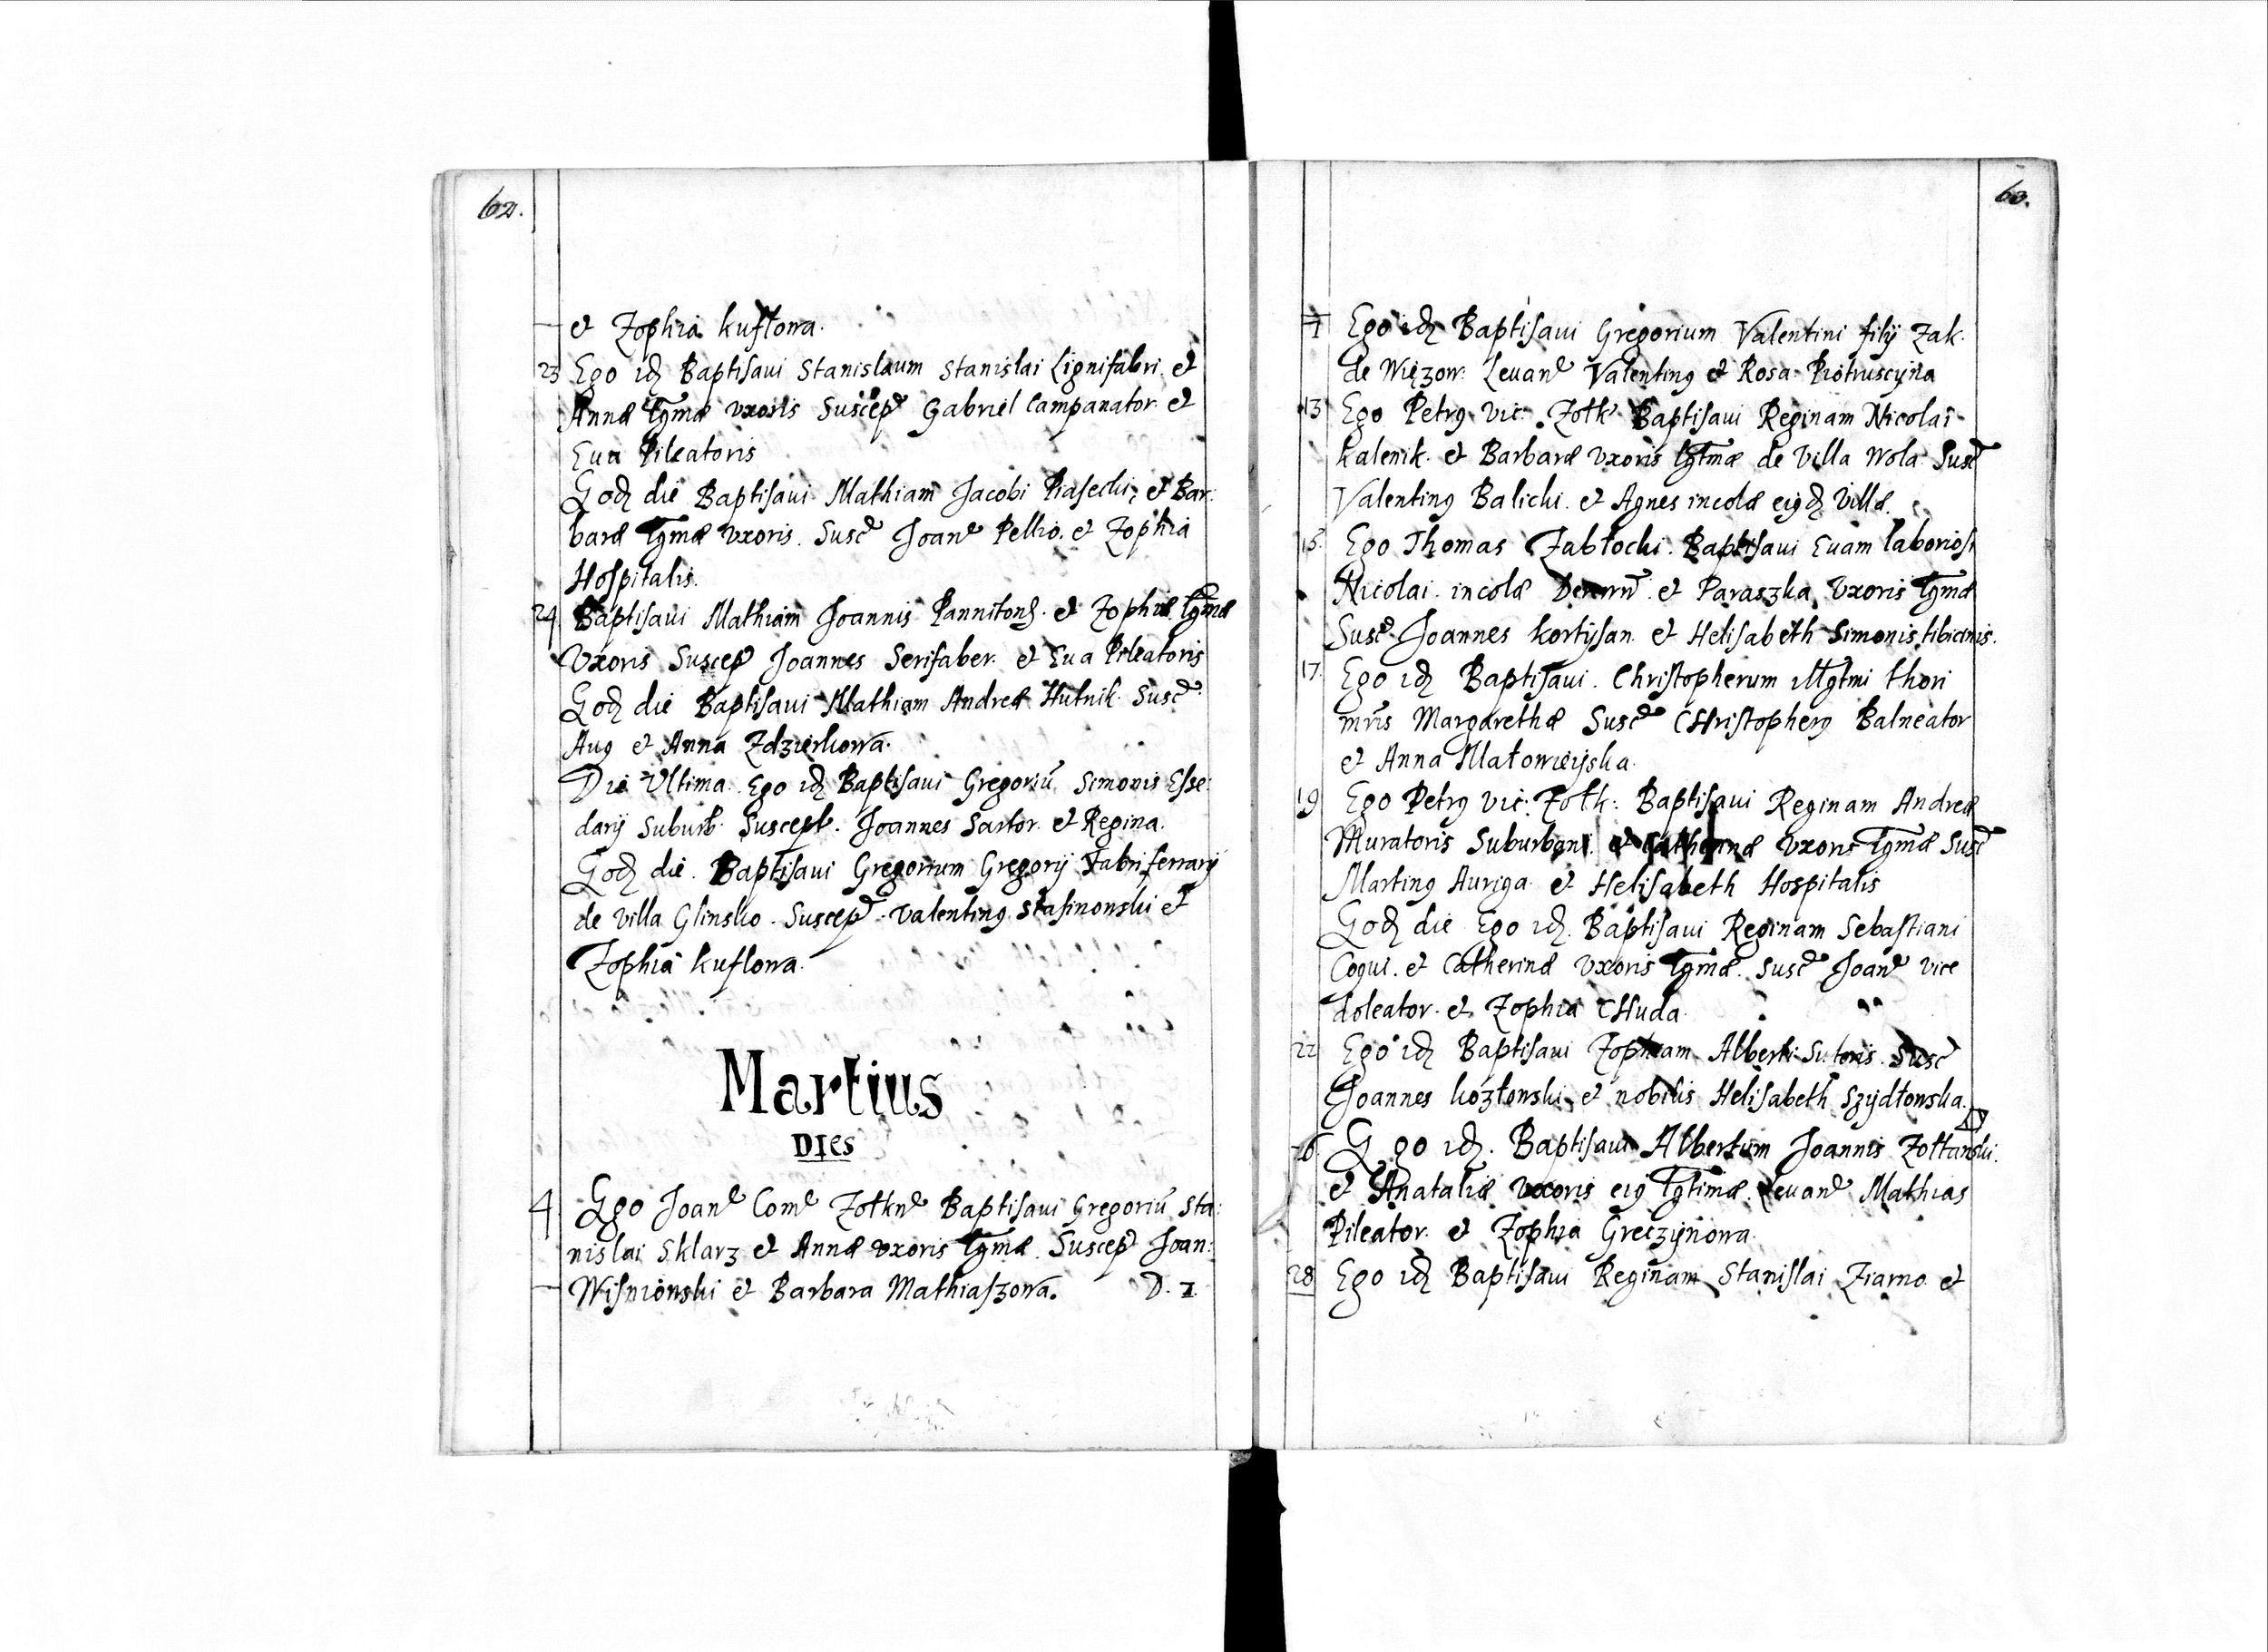 62.
et Zophia kuflowa.
23 Ego idꝫ Baptisaui Stanislaum Stanislai Lignifabri. et
Annæ lgmæ vxoris Suscep Gabriel Campanator et
Eua Pileatoris
Eodꝫ die Baptisaui Mathiam Jacobi Piasecki, et Bar:
baræ lgmæ vxoris. Susc Joan Pellio. et Zophia
Hospitalis.
24 Baptisaui Mathiam Joannis et Zophiæ lgmæ
Vxoris Suscep Joannes Serifaber. et Eua Pileatoris
Eodꝫ die Baptisaui Mathiam Andreæ Hutnik Susc
Aug et Anna Zdzierkowa.
Die Vltima. Ego idꝫ Baptisaui Gregoriũ Simonis Esse:
darij Suburb. Suscept. Joannes Sartor. et Regina.
Eodꝫ die. Baptisaui Gregorium Gregorij Fabri ferrarij
de villa Glinsko. Suscep. Valentinꝯ Stasinowski et
Zophia kuflowa.
Martius
DIes
4 Ego Joan Com Zołkn Baptisaui Gregoriũ Sta:
nislai Sklarz et Annæ vxoris lgmæ. Suscep Joan:
Wisniowski et Barbara Mathiaszowa. D. 7.
63.
7 Ego idꝫ Baptisaui Gregorium Valentini filij Zak.
de Więzow: Leuan Valentinꝯ et Rosa Piotruscyna
13 Ego Petrꝯ vic: Zołk Baptisaui Reginam Nicolai
kalenik. et Barbaræ vxoris lgtmæ de villa Wola Susc
Valentinꝯ Balicki. et Agnes incolæ eiꝯdꝫ villæ.
15. Ego Thomas Zabłocki. Baptisaui Euam laboriosi
Nicolai. incolæ et Paraszka Vxoris lgmæ
Susc Joannes kortysan. et Helisabeth Simonis tibicinis.
17. Ego idꝫ Baptisaui. Christopherum Illgtmi thori
mris Margarethæ Susc CHristopherꝯ Balneator
et Anna Małowieyska.
19 Ego Petrꝯ vic: Zołk: Baptisaui Reginam Andreæ
Muratoris Suburbani. et Catherinæ vxoris lgmæ Susc
Martinꝯ Auriga et Helisabeth Hospitalis
Eodꝫ die Ego idꝫ. Baptisaui Reginam Sebastiani
Coqui. et Catherinæ vxoris lgmæ. Susc Joan vice
doleator. et Zophia CHuda.
22 Ego idꝫ Baptisaui Zophiam Alberti Sutoris. Susc
Joannes kozłowski et nobilis Helisabeth Szydłowska.
26. Ego idꝫ. Baptisaui Albertum Joannis Zołtanski.
et Anataliæ vxoris eiꝯ lgtimæ. Leuan Mathias
Pileator. et Zophia Greczynowa.
28 Ego idꝫ Baptisaui Reginam Stanislai Ziarno et